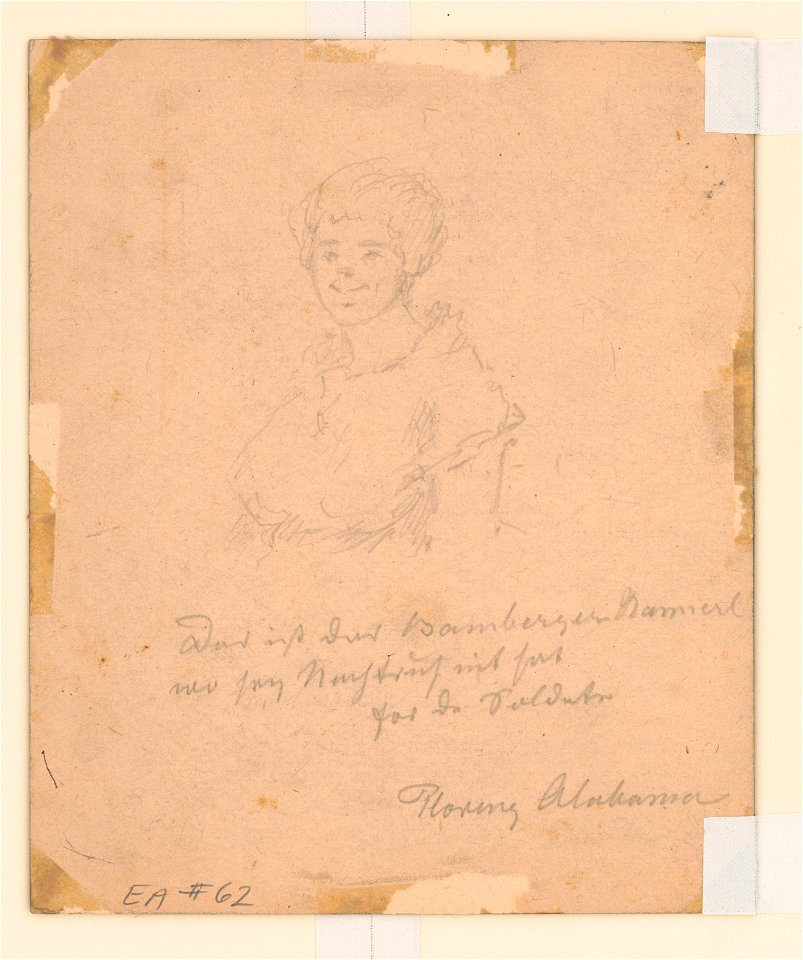 Das ist der Bamberger
wo sey Nachtruh nit hat
for de Soldate
Florenz Alabama
EA #62